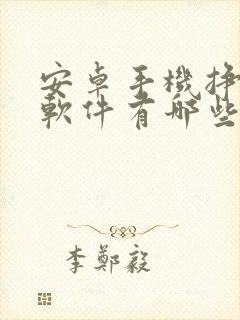 安卓手機掙
軟件有哪些
李鄭毅